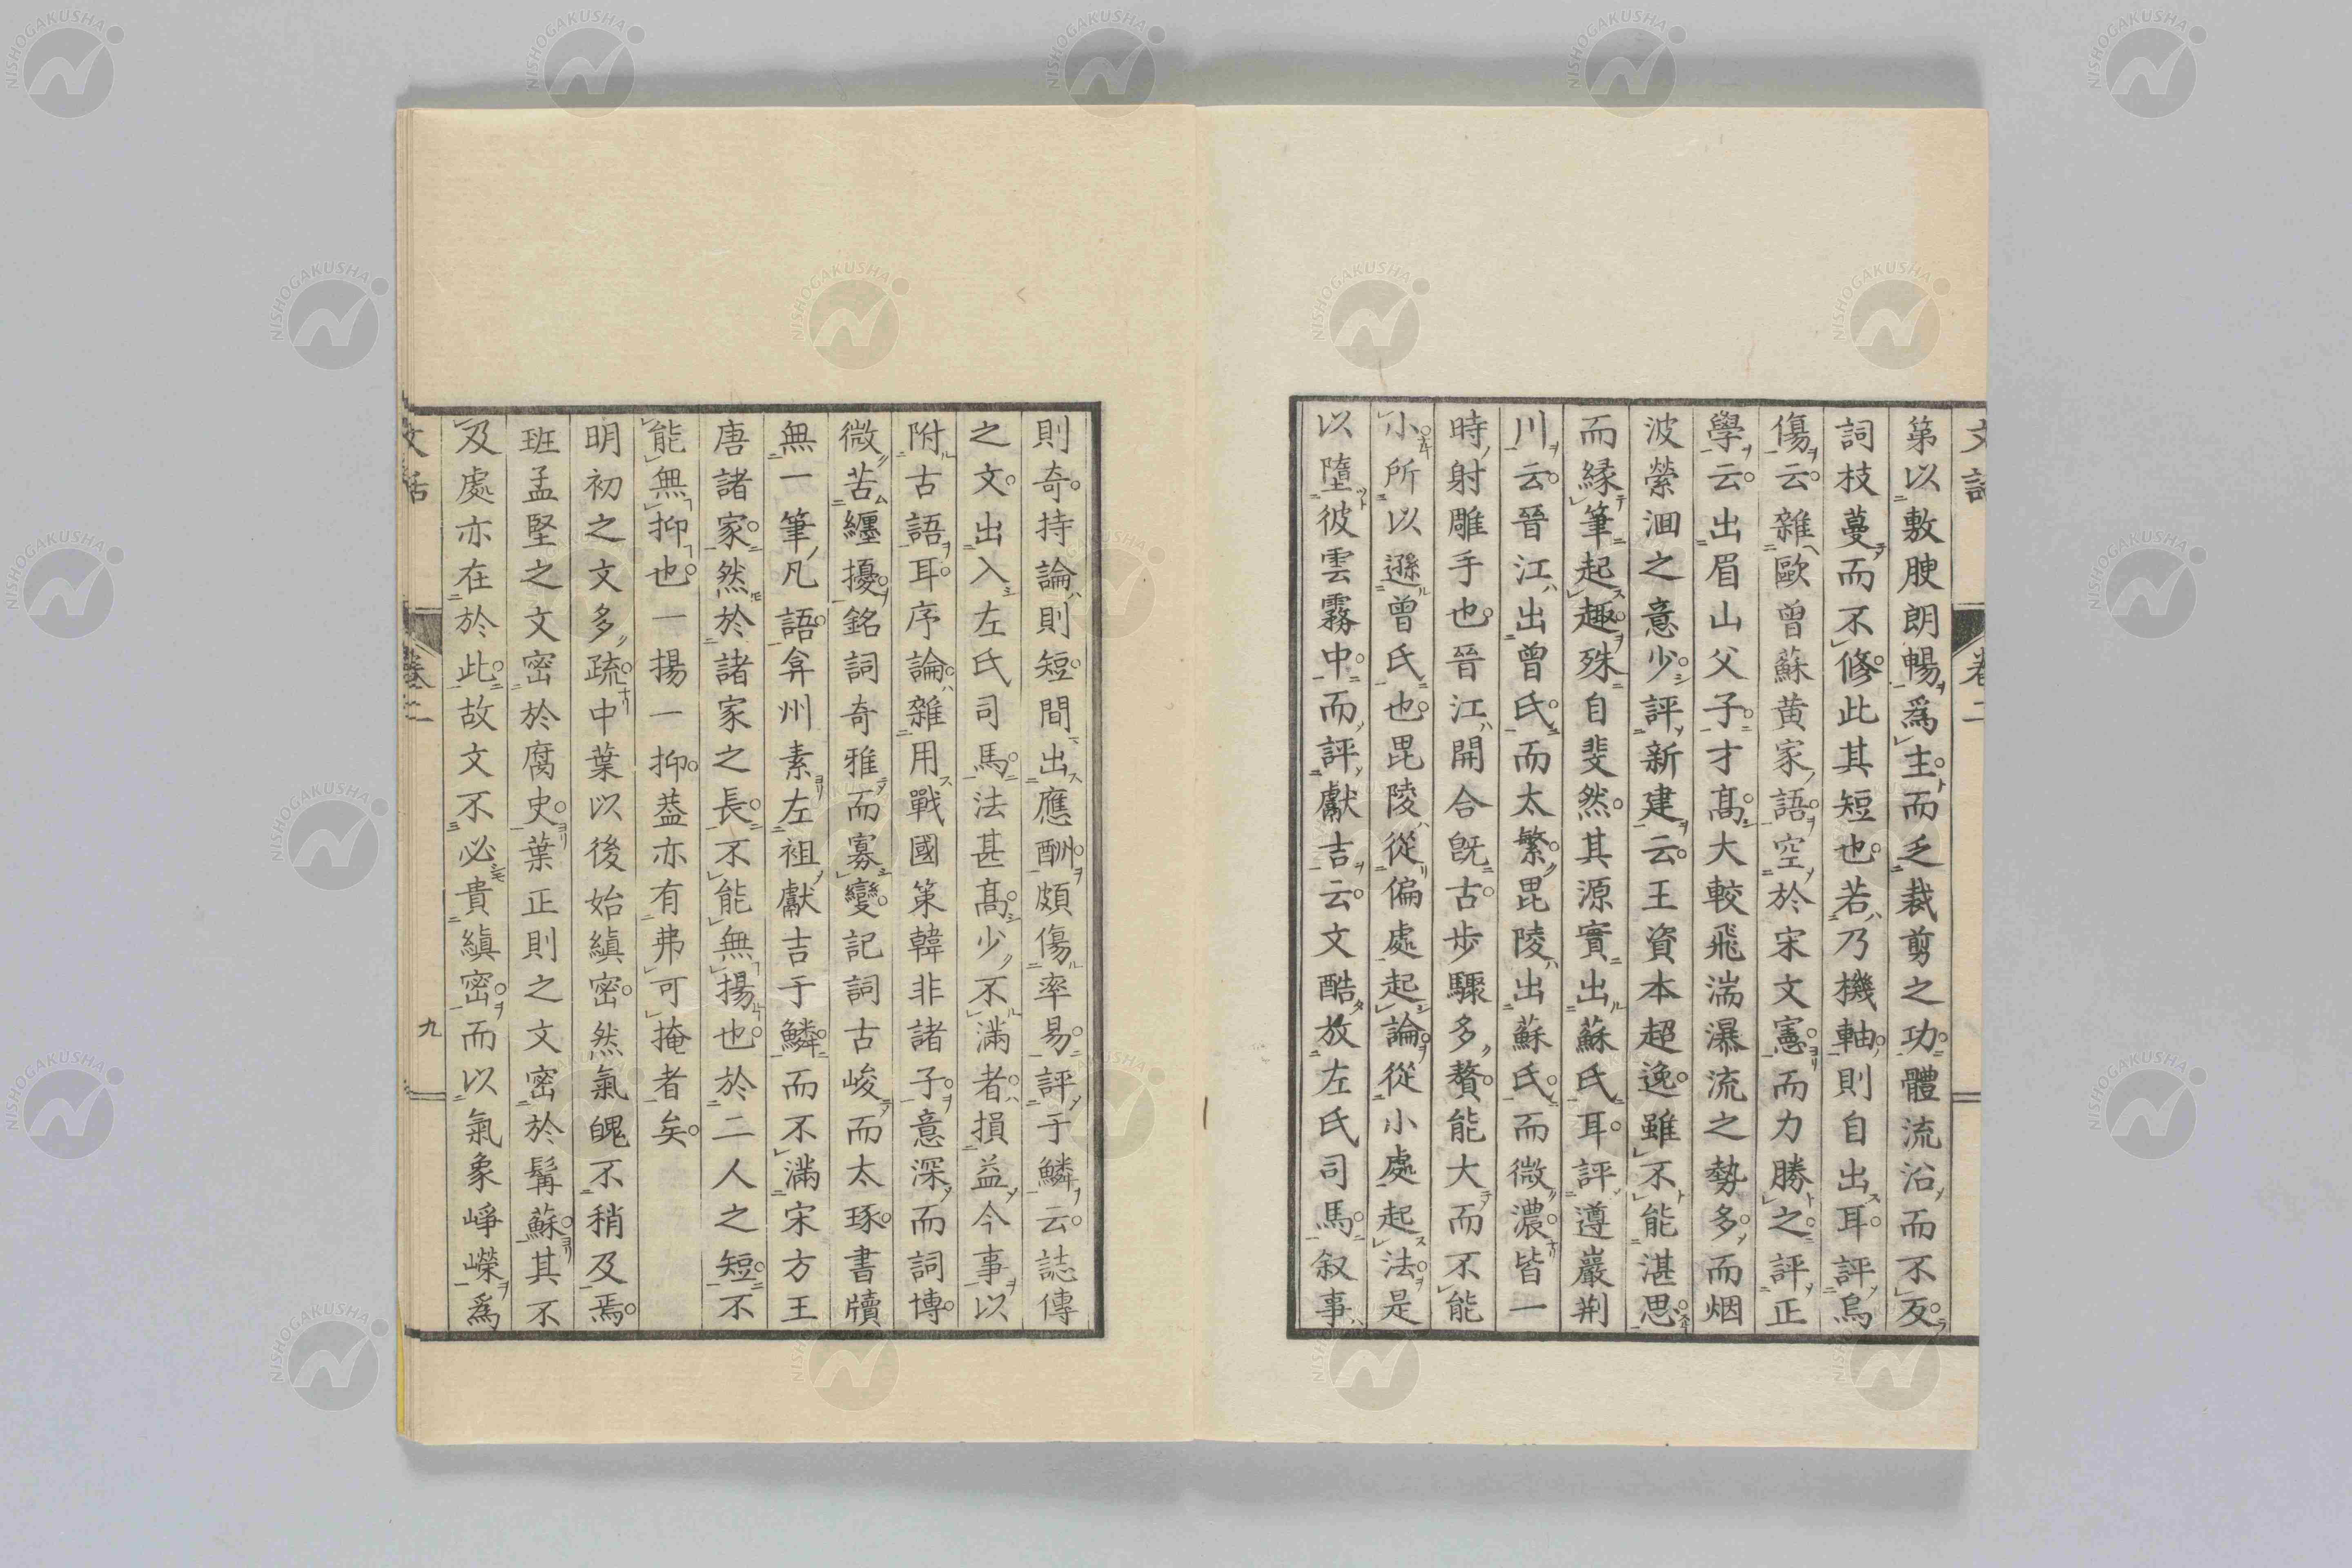 第以敷腴朗暢爲主而乏裁剪之功體流沿而不反
詞枝蔓而不修此其短也若乃機軸則自出耳評烏
傷云雜歐曾蘇黄家語空於宋文憲而力勝之評正
學云出眉山父子才髙大較飛湍瀑流之勢多而烟
波縈洄之意少評新建云王資本超逸雖不能湛思
而縁筆起趣殊自斐然其源實出蘇氏耳評遵巖荆
川云晉江出曾氏而太繁毘陵出蘇氏而微濃皆一
時射雕手也晉江開合既古歩驟多贅能大而不能
小所以遜曾氏也毘陵從偏處起論從小處起法是
以墮彼雲霧中而評獻吉云文酷放左氏司馬叙事
則奇持論則短間出應酬頗傷率易評于鱗云誌傳
之文出入左氏司馬法甚髙少不滿者損益今事以
附古語耳序論雜用戰國策韓非諸子意深而詞博
微苦纏擾銘詞奇雅而寡變記詞古峻而太琢書牘
無一筆凡語弇州素左袒獻吉于鱗而不滿宋方王
唐諸家然於諸家之長不能無揚也於二人之短不
能無抑也一揚一抑葢亦有弗可掩者矣
明初之文多疏中葉以後始縝密然氣魄不稍及焉
班孟堅之文密於腐史葉正則之文密於髯蘇其不
及處亦在於此故文不必貴縝密而以氣象崢嶸爲
文話
卷二
九